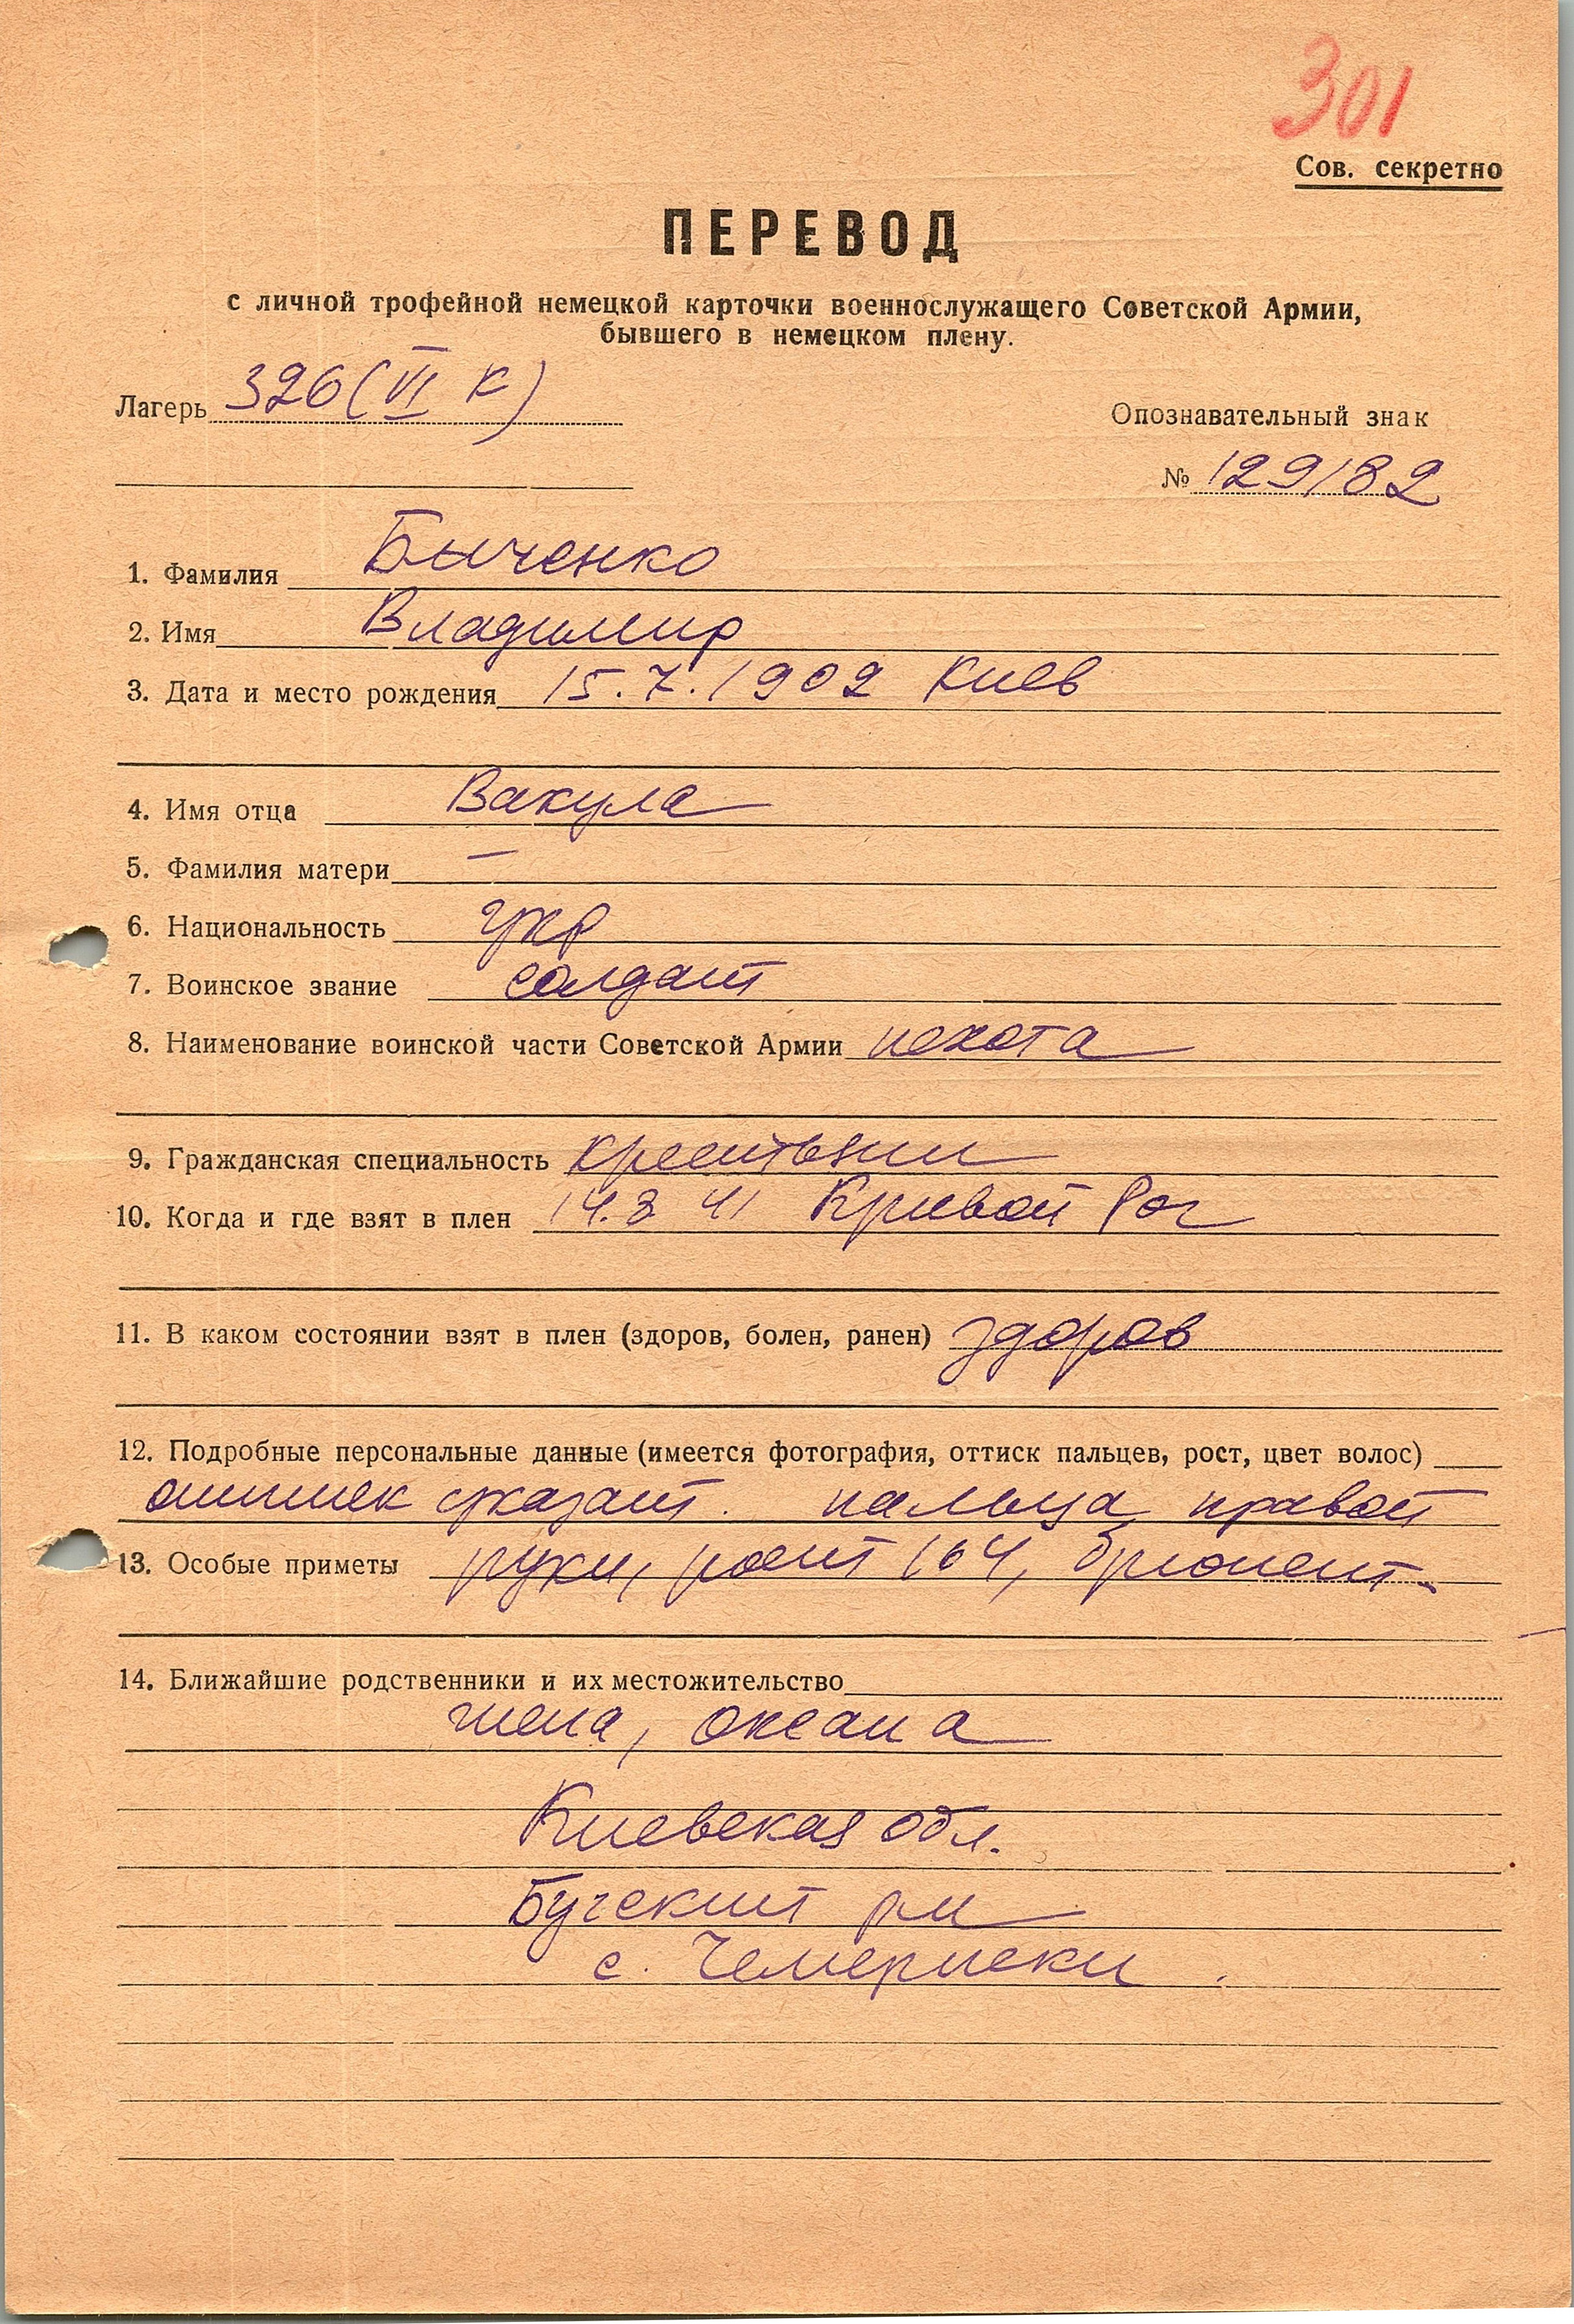 301
Сов. секретно
ПЕРЕВОД
с личной трофейной немецкой карточки военнослужащего Советской Армии,
бывшего в немецком плену.
Лагерь 326 (VI К)
Опознавательный знак
№ 129182
1. Фамилия Быченко
2. Имя Владимир
3. Дата и место рождения 15.7.1902 Киев
4. Имя отца Вакула
5. Фамилия матери —
6. Национальность укр
7. Воинское звание солдат
8. Наименование воинской части Советской Армии пехота
9. Гражданская специальность крестьянин
10. Когда и где взят в плен 14.8 41 Кривой Рог
11. В каком состоянии взят в плен (здоров, болен, ранен) здоров
12. Подробные персональные данные (имеется фотография, оттиск пальцев, рост, цвет волос)
оттиск указат. пальца правой
13. Особые приметы руки, рост 164, брюнет
14. Ближайшие родственники и их местожительство
жена, Оксана
Киевская обл.
Бугский рн
с. Чемериски.